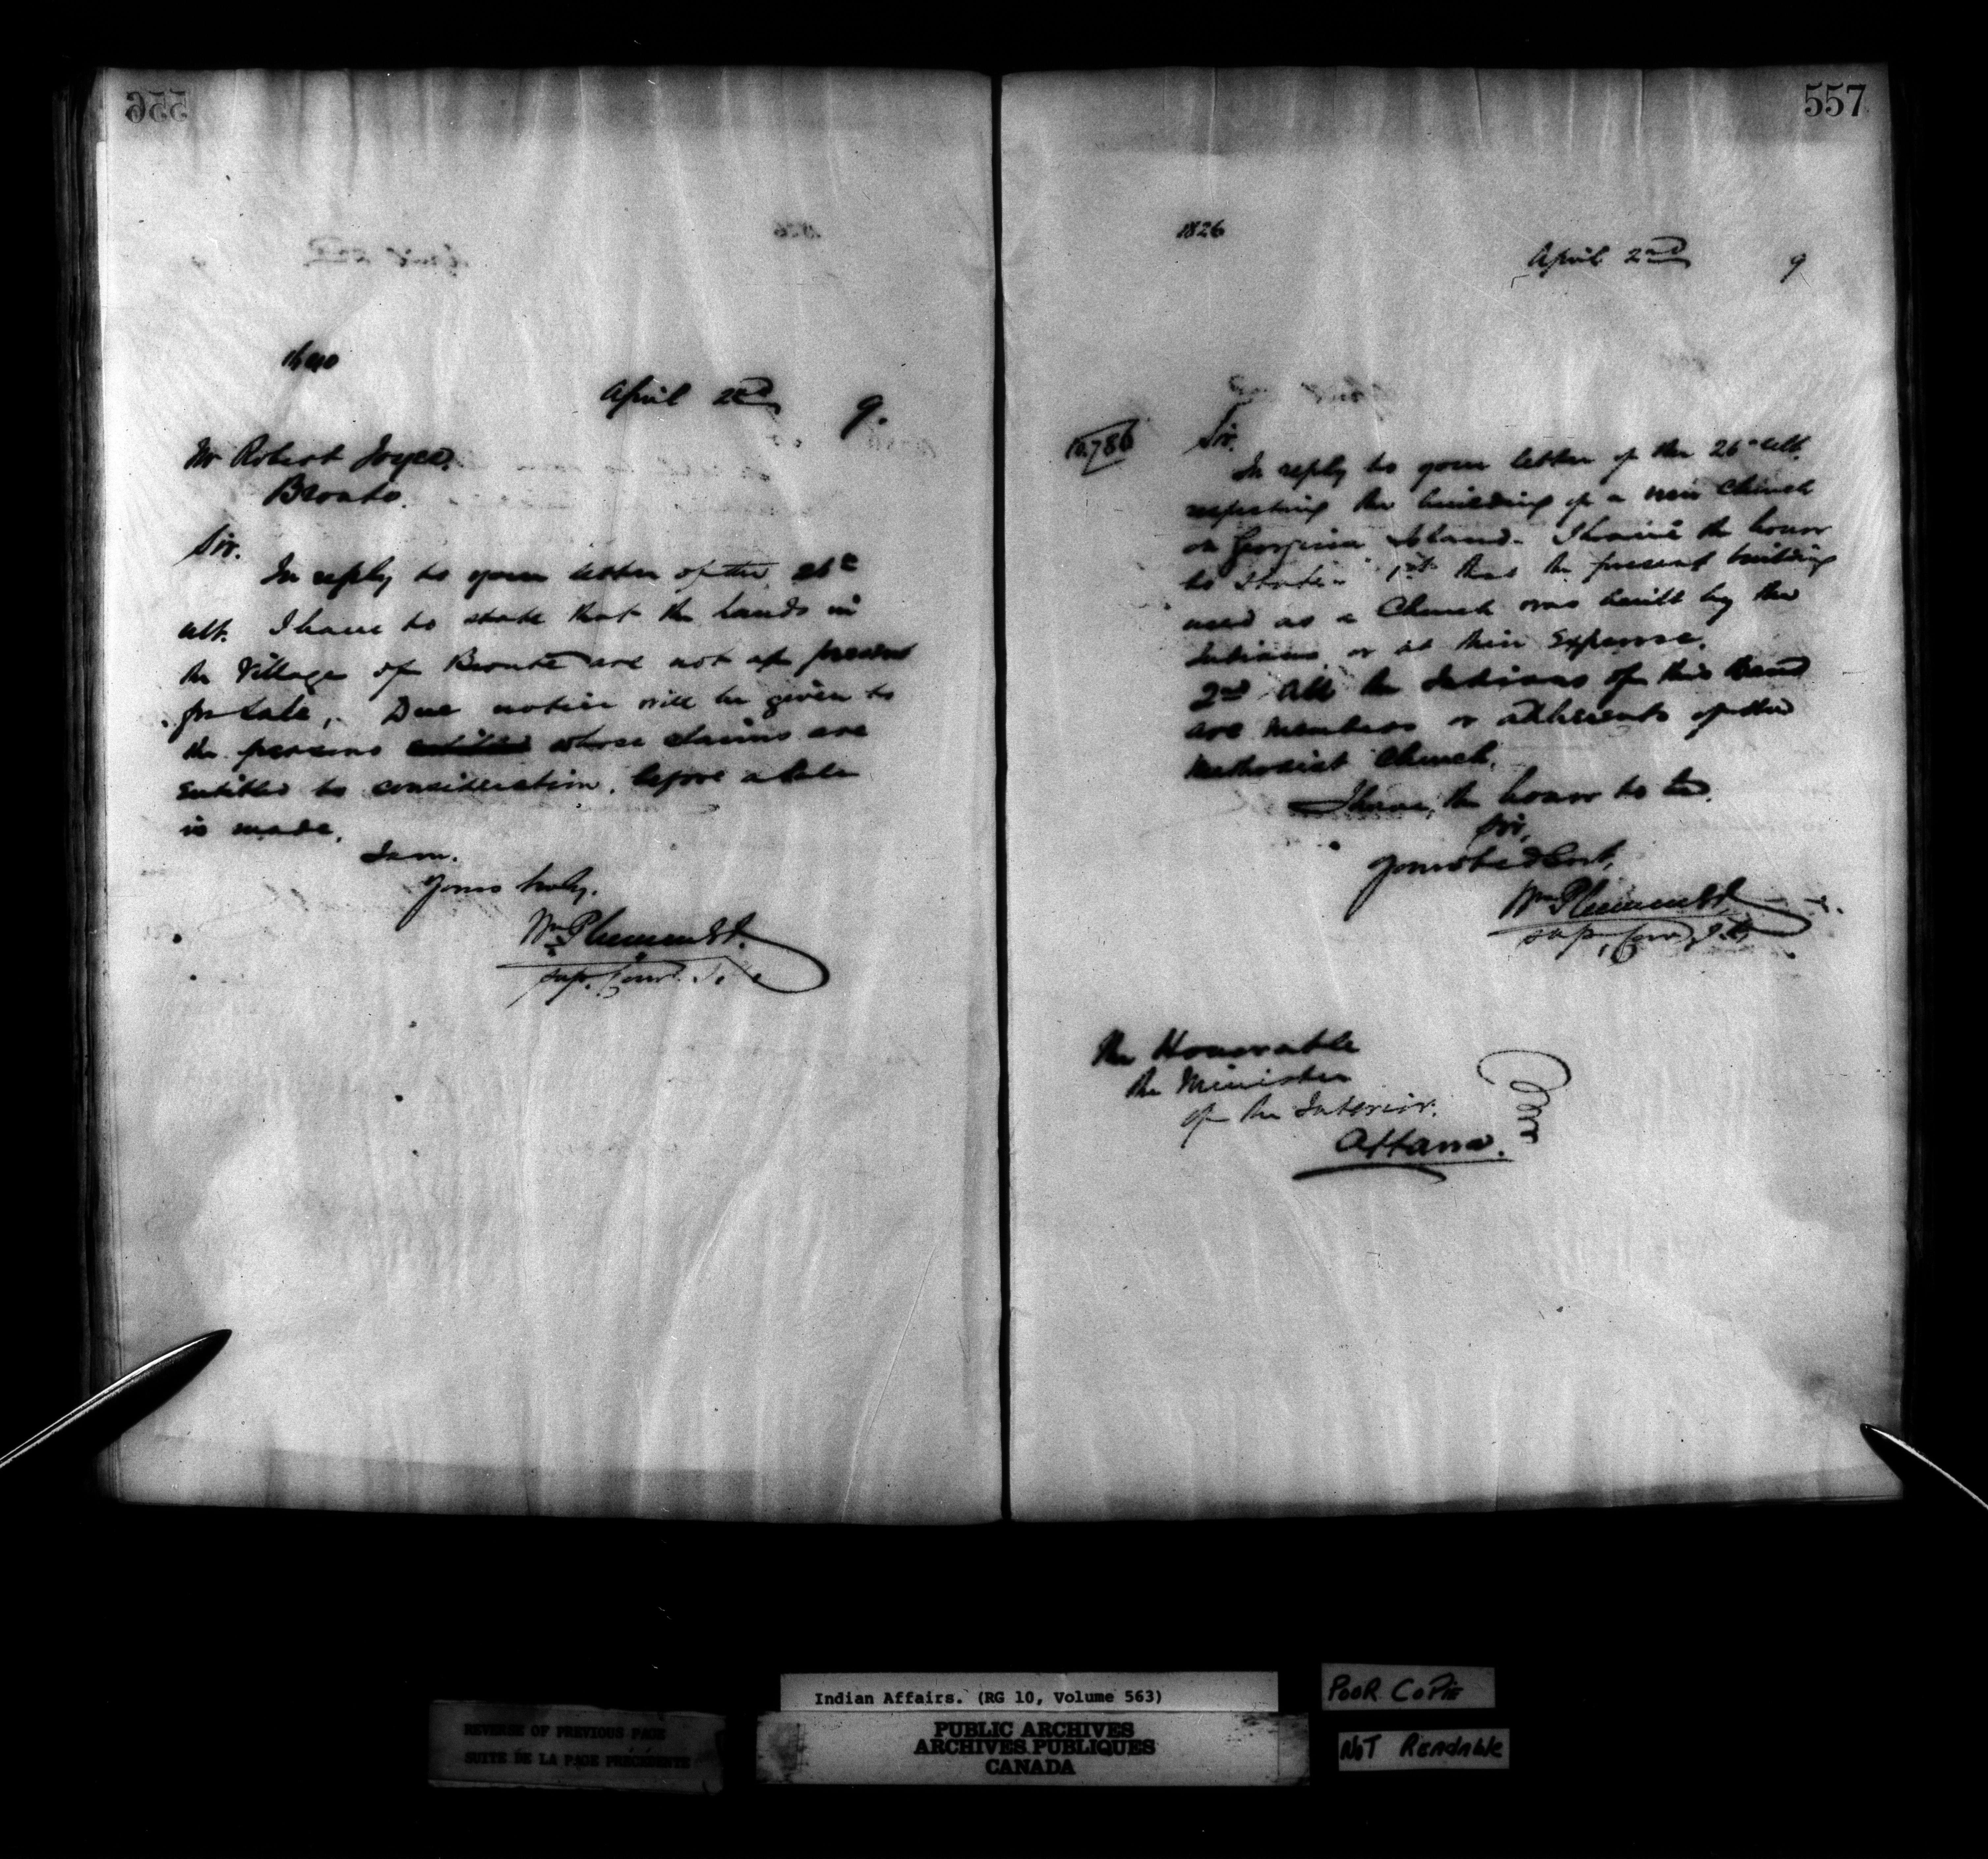 556
April 2nd 9.
Mr Robert Joyce.
Bronte.
Sir.
In reply to your letter of the 26th
ult. I have to state that the lands in
the Village of Bronte are not at present
for sale, Due notice will be given to
the persons entitled whose claims are
entitled to consideration, before a sale
is made.
I am.
Yours truly,
Wm Plummer
Sup. Comr.
557
1826
April 2nd 9
10,786
Sir.
In reply to your letter of the 26th ult.
respecting the building of a new Church
on Georgina Island. I have the honor
to state. 1st that the present building
used as a Church was built by the
Indians or at their Expense.
2nd All the Indians of this Band
are members or adherents of the
Methodist Church.
I have, the honor to be.
Sir,
Your obedt Servt,
Wm Plummer
Sup, Comr,
The Honorable
the Minister
of the Interior.
Ottawa.
Indian Affairs. (RG 10, Volume 563)
PUBLIC ARCHIVES
ARCHIVES PUBLIQUES
CANADA
REVERSE OF PREVIOUS PAGE
SUITE DE LA PAGE PRÉCÉDENTE
POOR COPIE
NOT READABLE